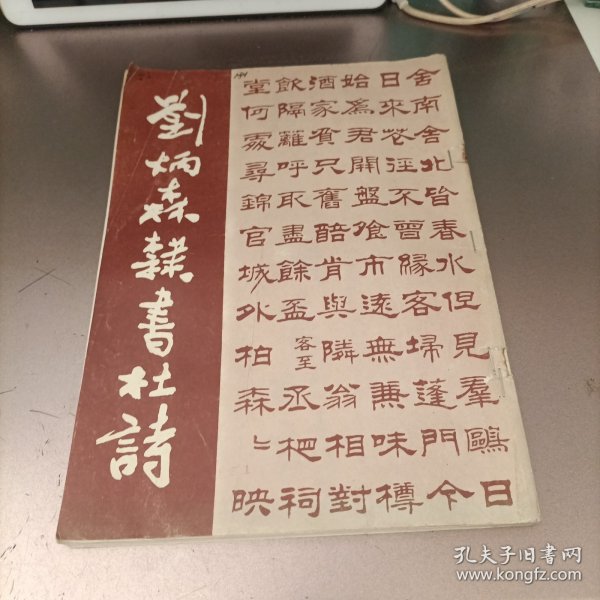 劉炳森隸書杜詩
舍南舍北皆春水但見羣鷗日
日來花徑不曾緣客掃蓬門今
始爲君開盤飱市遠無兼味樽
酒家貧只舊醅肯與隣翁相對
飲隔籬呼取盡餘盃客至丞相祠
堂何處尋錦官城外柏森〻映
孔夫子旧书网
www.kongfz.com